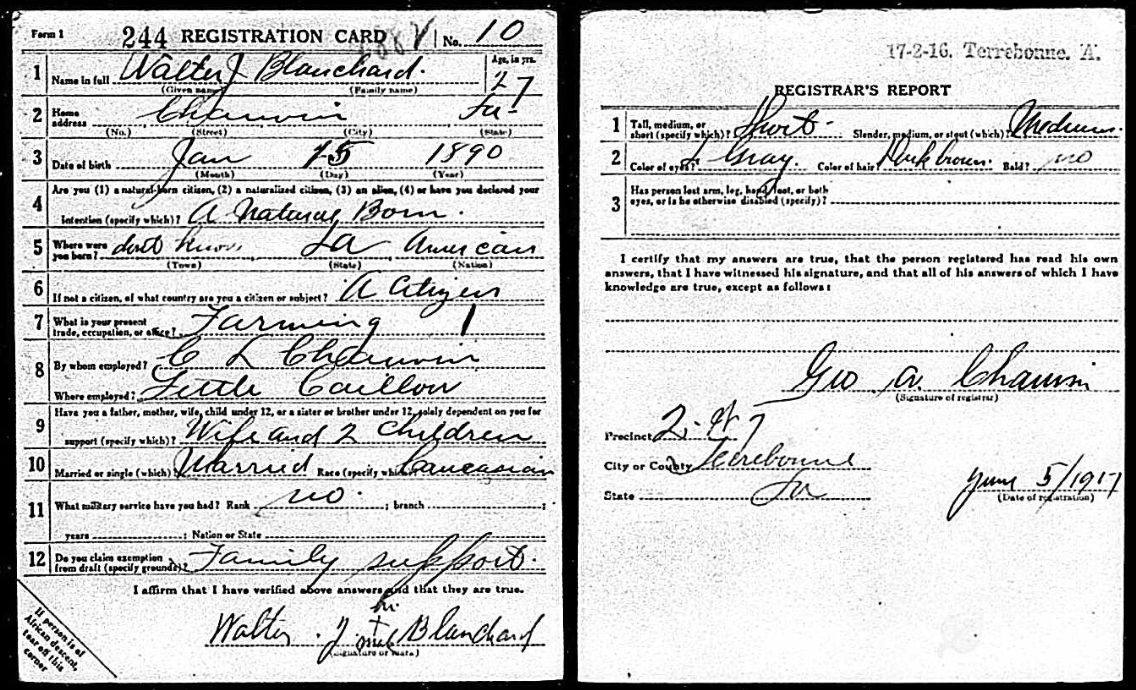 Form 1 244 REGISTRATION CARD No. 10
1 Name in full Walter J Blanchard. Age, in yrs. 27
(Given name) (Family name)
2 Home address Chauvin La-
(No.) (Street) (City) (State)
3 Date of birth Jan 15 1890
(Month) (Day) (Year)
4 Are you (1) a natural-born citizen, (2) a naturalized citizen, (3) an alien, (4) or have you declared your
intention (specify which)? A Natural Born.
5 Where were you born? dont know La American
(Town) (State) (Nation)
6 If not a citizen, of what country are you a citizen or subject? A Citizen
7 What is your present trade, occupation, or office? Farming 1
8 By whom employed? C L Chauvin
Where employed? Little Caillou
9 Have you a father, mother, wife, child under 12, or a sister or brother under 12, solely dependent on you for
support (specify which)? Wife and 2 Children
10 Married or single (which)? Married Race (specify which)? Caucasian
11 What military service have you had? Rank no. ; branch ;
years ; Nation or State
12 Do you claim exemption from draft (specify grounds)? Family support.
I affirm that I have verified above answers and that they are true.
his
Walter J + Blanchard
mark
(Signature or mark)
If person is of
African descent,
tear off this
corner
17-2-16. Terrebonne. A.
REGISTRAR'S REPORT
1 Tall, medium, or short (specify which)? Short- Slender, medium, or stout (which)? Medium
2 Color of eyes? L Gray. Color of hair? Dark brown. Bald? no
3 Has person lost arm, leg, hand, foot, or both
eyes, or is he otherwise disabled (specify)?
I certify that my answers are true, that the person registered has read his own
answers, that I have witnessed his signature, and that all of his answers of which I have
knowledge are true, except as follows:
Geo A. Chauvin
(Signature of registrar)
Precinct 2- W 7
City or County Terrebonne
State La June 5/1917
(Date of registration)